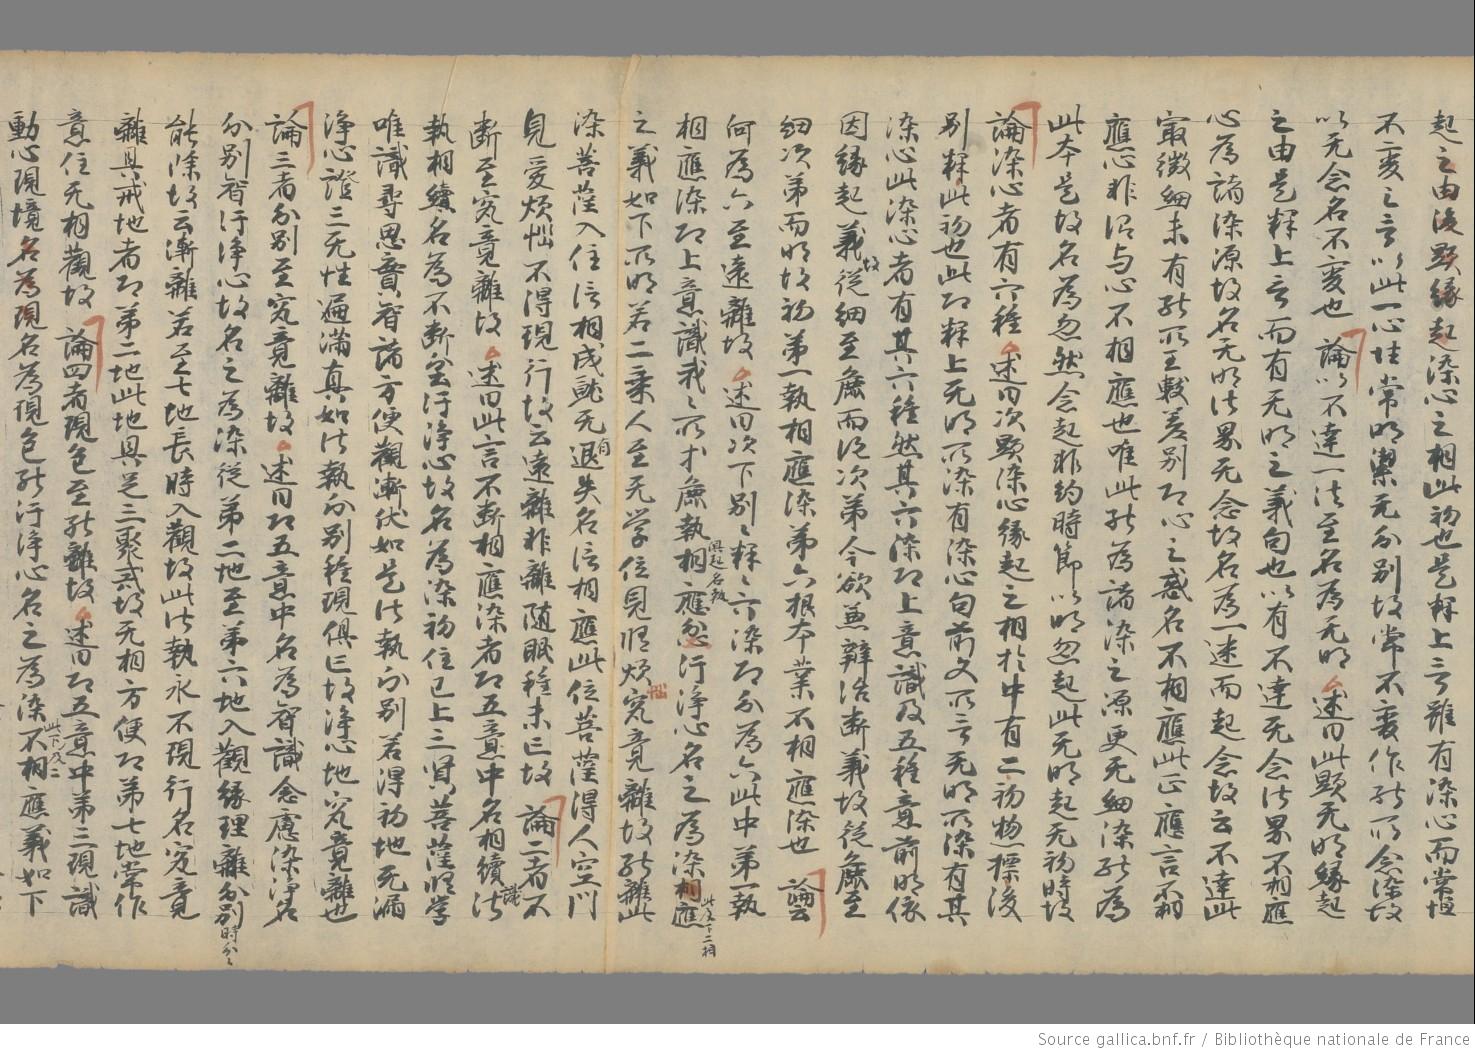 起之由後顯緣起染心之相此初也是釋上言雖有染心而常恒
不變之言以此一心性常明潔无分別故常不變作能所念染故
以无念名不變也 論以不達一法至名為无明 述曰此顯无明緣起
之由是釋上言而有无明之義句也以有不達无念法界不相應
心為諸染源故名无明法界无念故名為一迷而起念故云不達此
寂微細未有能所王數差別即心之惑名不相應此正應言不相
應心非謂与心不相應也唯此能為諸染之源更无細染能為
此本是故名為忽然念起非約時節以明忽起此无明起无初時故
論染心者有六種 述曰次顯染心緣起之相於中有二初惣標後
別釋此初也此即釋上无明所染有染心句前文所言无明所染有其
染心此染心者有其六種然其六染即上意識及五種意前明依
因緣起義故從細至麁而說次第今欲兼辯治斷義故從麁至
細次第而明故初第一執相應染第六根本業不相應染也 論云
何為六至遠離故 述曰次下別〻釋〻六染即分為六此中第一執
相應染即上意識我〻所才麁執相應忿汙淨心名之為染相應
興起名執
此后下二相
之義如下所明若二乘人至无学位見脩煩惱究竟離故能離此
染菩薩入住信相成就无自退失名信相應此位菩薩得人空門
見愛煩惱不得現行故云遠離非離隨眠種未亡故 論二者不
斷至究竟離故 述曰此言不斷相應染者即五意中名相續識法
執相續名為不斷至汙淨心故名為染初住已上三賢菩薩脩學
唯識尋思實智諸方便觀漸伏如是法執分別若得初地无漏
淨心證三无性遍滿真如法執分別種現俱亡故淨心地究竟離也
論三者分別至究竟離故 述曰即五意中名為智識念慮染淨名
分別智汙淨心故名之為染從第二地至第六地入觀緣理離分別時分〻
能除故云漸離若至七地長時入觀故此法執永不現行名究竟
離具戒地者即第二地此地具足三聚戒故无相方便即第七地常作
意住无相觀故 論四者現色至能離故 述曰即五意中第三現識
動心現境名為現名為現色能汙淨心名之為染不相應義如下